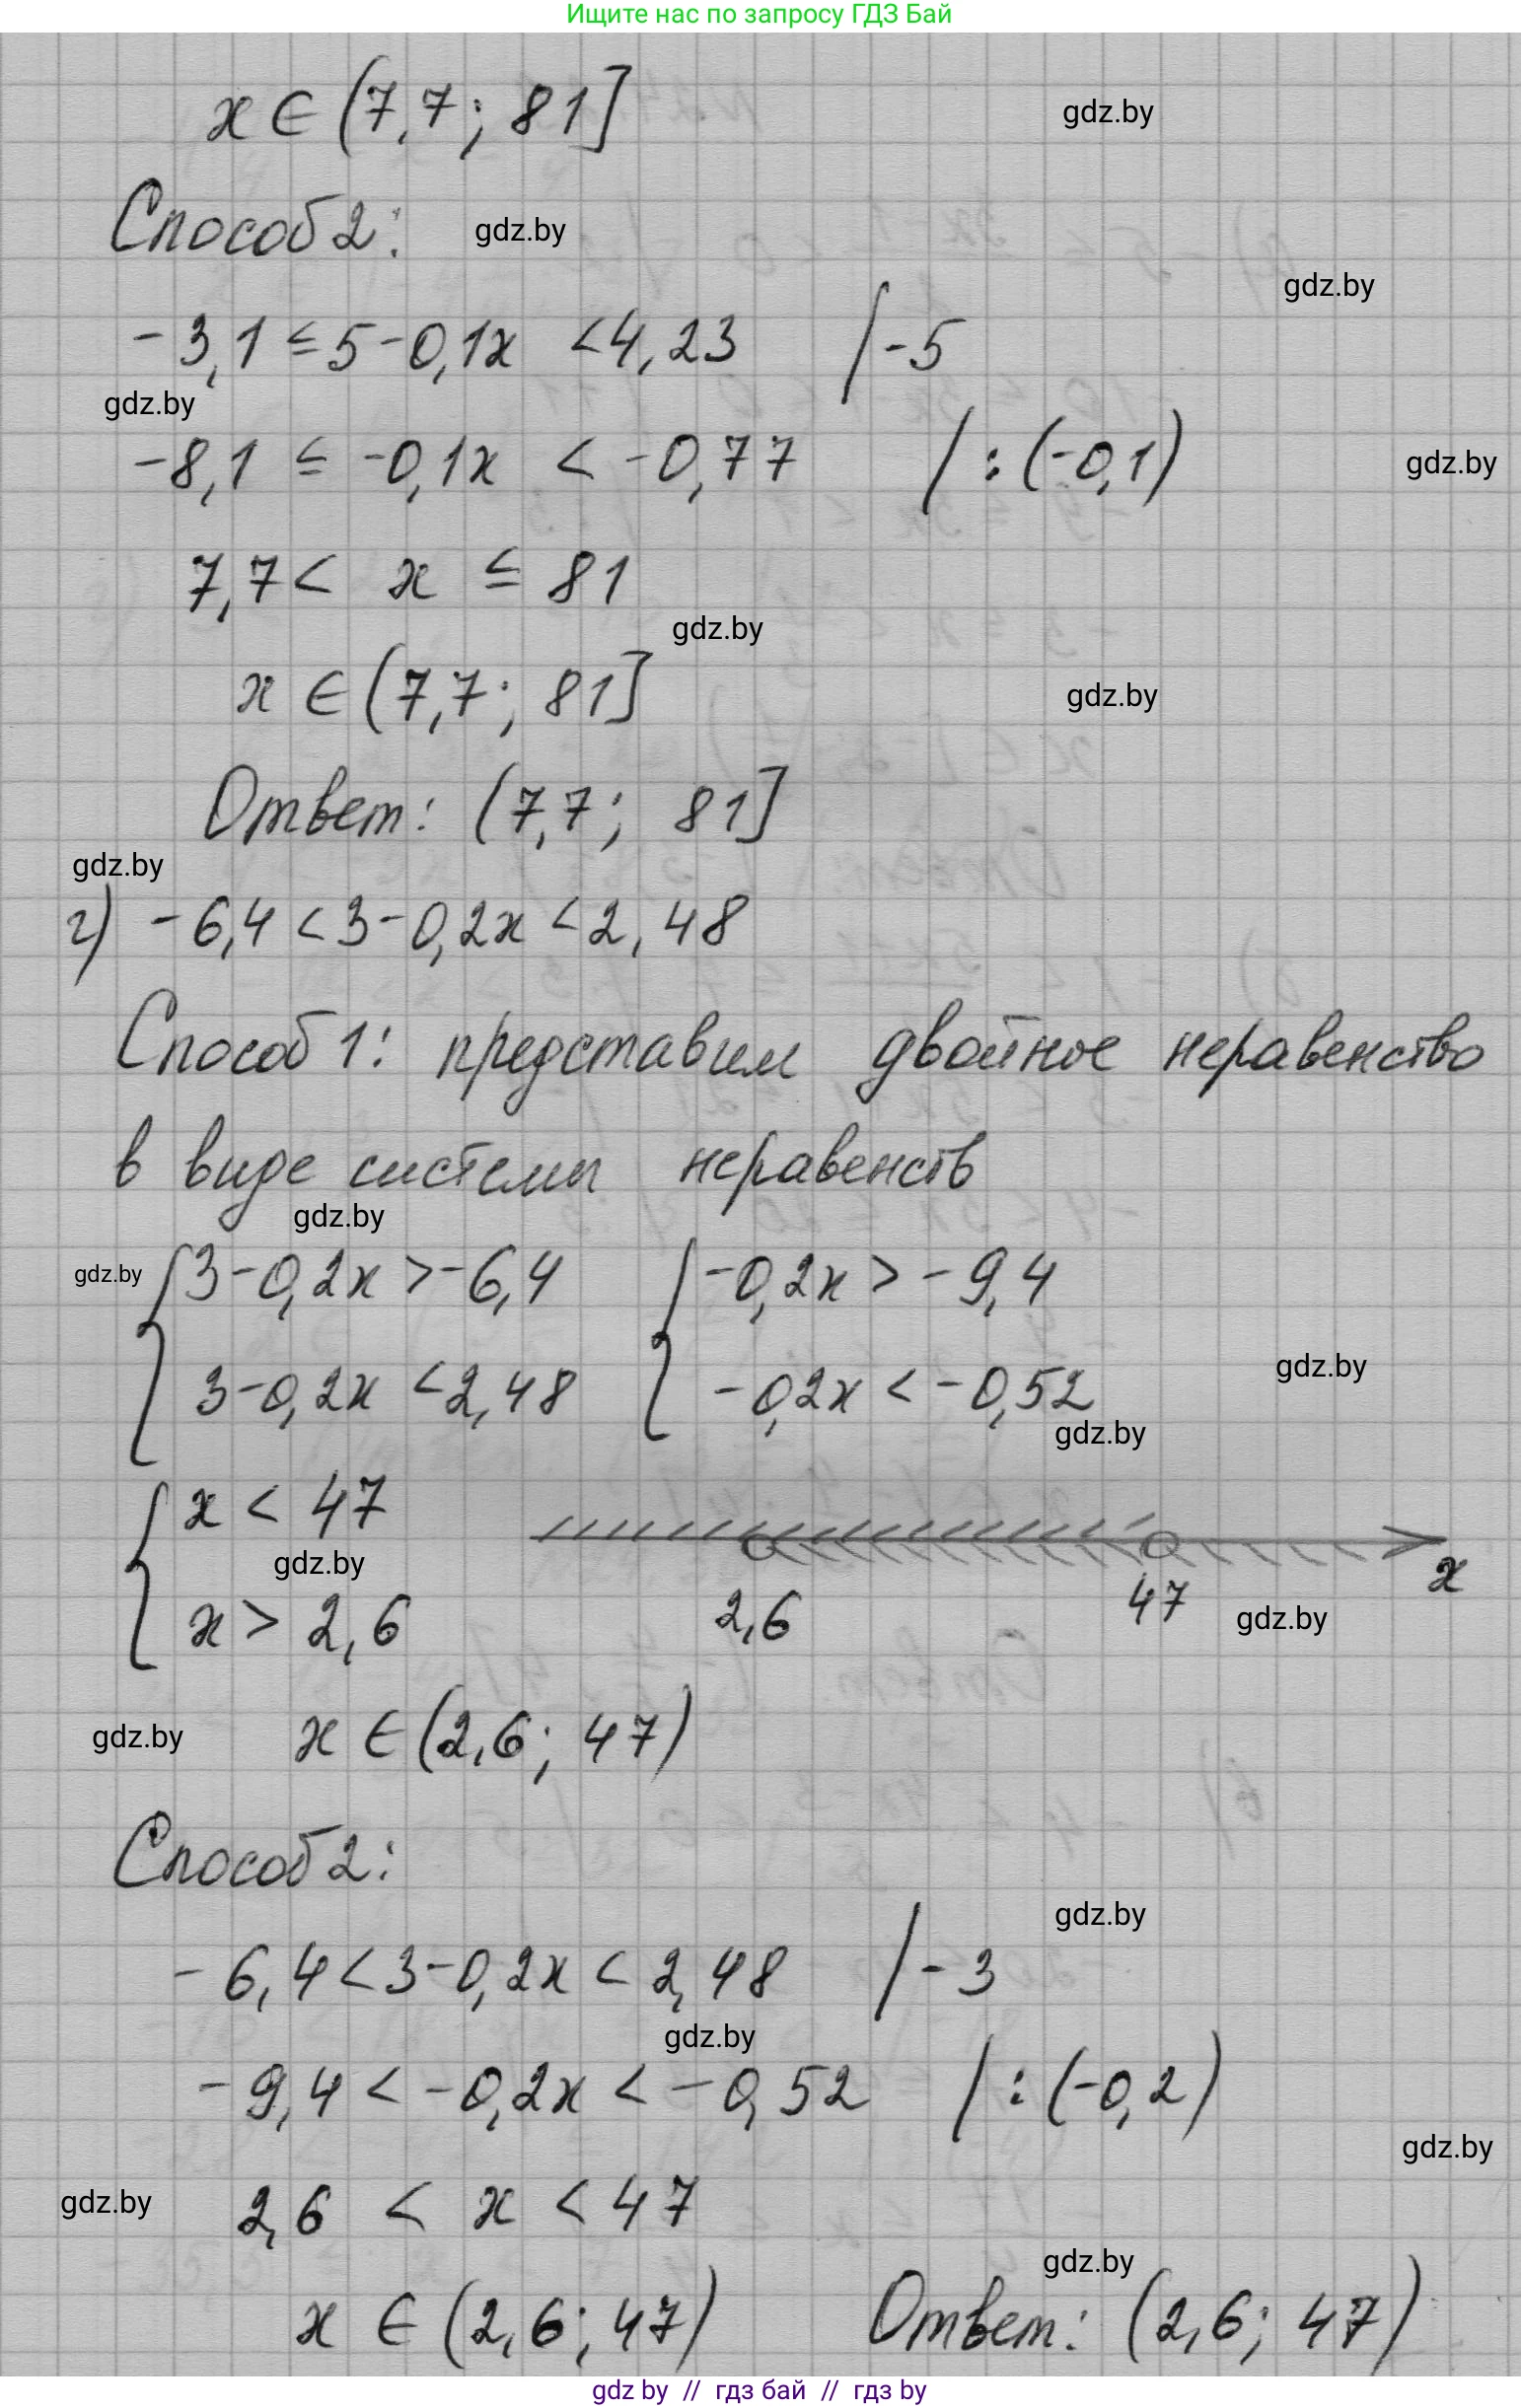 Ищите нас по запросу ГДЗ Бай
x ∈ (7,7; 81]
gdz.by
Способ 2:
gdz.by
gdz.by
-3,1 ≤ 5 - 0,1x < 4,23 | -5
gdz.by
-8,1 ≤ -0,1x < -0,77 | : (-0,1)
gdz.by
7,7 < x ≤ 81
gdz.by
x ∈ (7,7; 81]
gdz.by
Ответ: (7,7; 81]
gdz.by
г) -6,4 < 3 - 0,2x < 2,48
Способ 1: представим двойное неравенство
в виде системы неравенств
gdz.by
gdz.by
{ 3 - 0,2x > -6,4 { -0,2x > -9,4
3 - 0,2x < 2,48 -0,2x < -0,52
gdz.by
gdz.by
{ x < 47
gdz.by
x > 2,6
2,6 47 x
gdz.by
x ∈ (2,6; 47)
gdz.by
Способ 2:
gdz.by
-6,4 < 3 - 0,2x < 2,48 | -3
gdz.by
-9,4 < -0,2x < -0,52 | : (-0,2)
gdz.by
2,6 < x < 47
gdz.by
gdz.by
x ∈ (2,6; 47) Ответ: (2,6; 47)
gdz by // гдз бай // гдз by